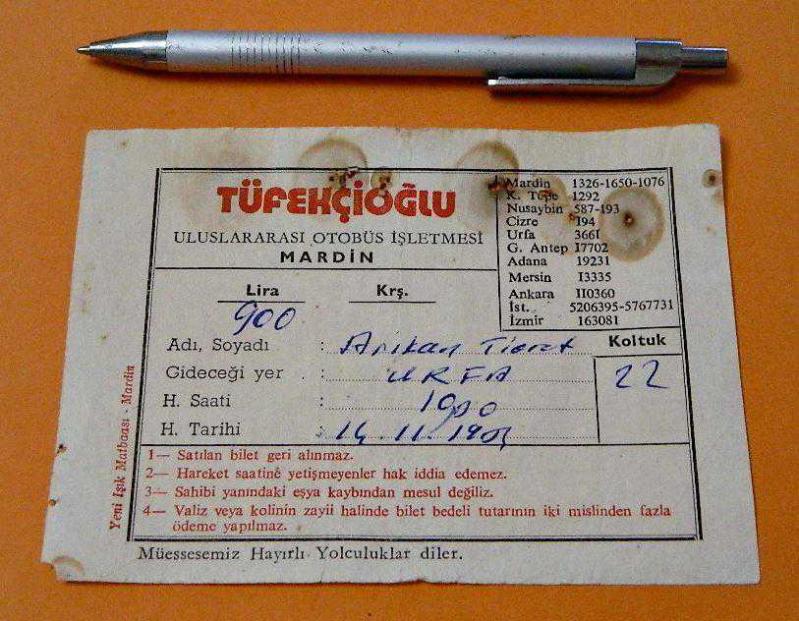 TÜFEKÇİOĞLU
ULUSLARARASI OTOBÜS İŞLETMESİ
MARDİN
Mardin 1326-1650-1076
K. Tepe 1292
Nusaybin 587-193
Cizre I94
Urfa 366I
G. Antep I7702
Adana 19231
Mersin I3335
Ankara II0360
İst. 5206395-5767731
İzmir 163081
Lira Krş.
900
Adı, Soyadı : Arıkan Ticret
Koltuk
Gideceği yer : URFA
22
H. Saati :
H. Tarihi : 14.11.
1— Satılan bilet geri alınmaz.
2— Hareket saatinê yetişmeyenler hak iddia edemez.
3— Sahibi yanındaki eşya kaybından mesul değiliz.
4— Valiz veya kolinin zayii halinde bilet bedeli tutarının iki mislinden fazla
ödeme yapılmaz.
Müessesemiz Hayırlı Yolculuklar diler.
Yeni Işık Matbaası - Mardin